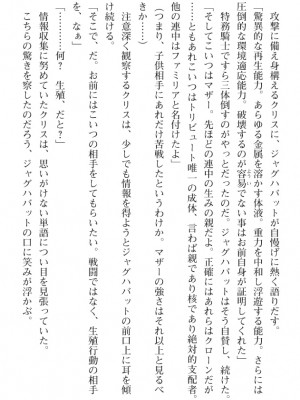 攻撃に備え身構えるクリスに、ジャグハバットが自慢げに熱く語りだす。
「驚異的な再生能力。あらゆる金属を溶かす体液。重力を中和し浮遊する能力。さらには
圧倒的な環境適応能力。破壊するのが容易でない事はお前自身が証明してくれた」
特務騎士ですら三体倒すのがやっとだったのだ。ジャグハバットはそう自賛し、続けた。
「そしてこいつはマザー。先ほどの連中の生みの親だよ。正確にはあれらはクローンだが
…ともあれこいつはトリビュート唯一の成体、言わば親であり核であり絶対的支配者。
他の連中はファミリアと名付けたよ」
(つまり、子供相手にあれだけ苦戦したというわけか。マザーの強さはそれ以上と見るべ
きか……)
注意深く観察するクリスは、少しでも情報を得ようとジャグハバットの前口上に耳を傾
け続ける。
「そこで、だ。お前にはこいつの相手をしてもらいたい。戦闘ではなく、生殖行動の相手
を、なぁ」
「………何っ 生殖、だと?」
情報収集に努めていたクリスは、思いがけない単語につい目を見張っていた。
こちらの驚きを察したのだろう、ジャグハバットの口に笑みが浮かぶ。